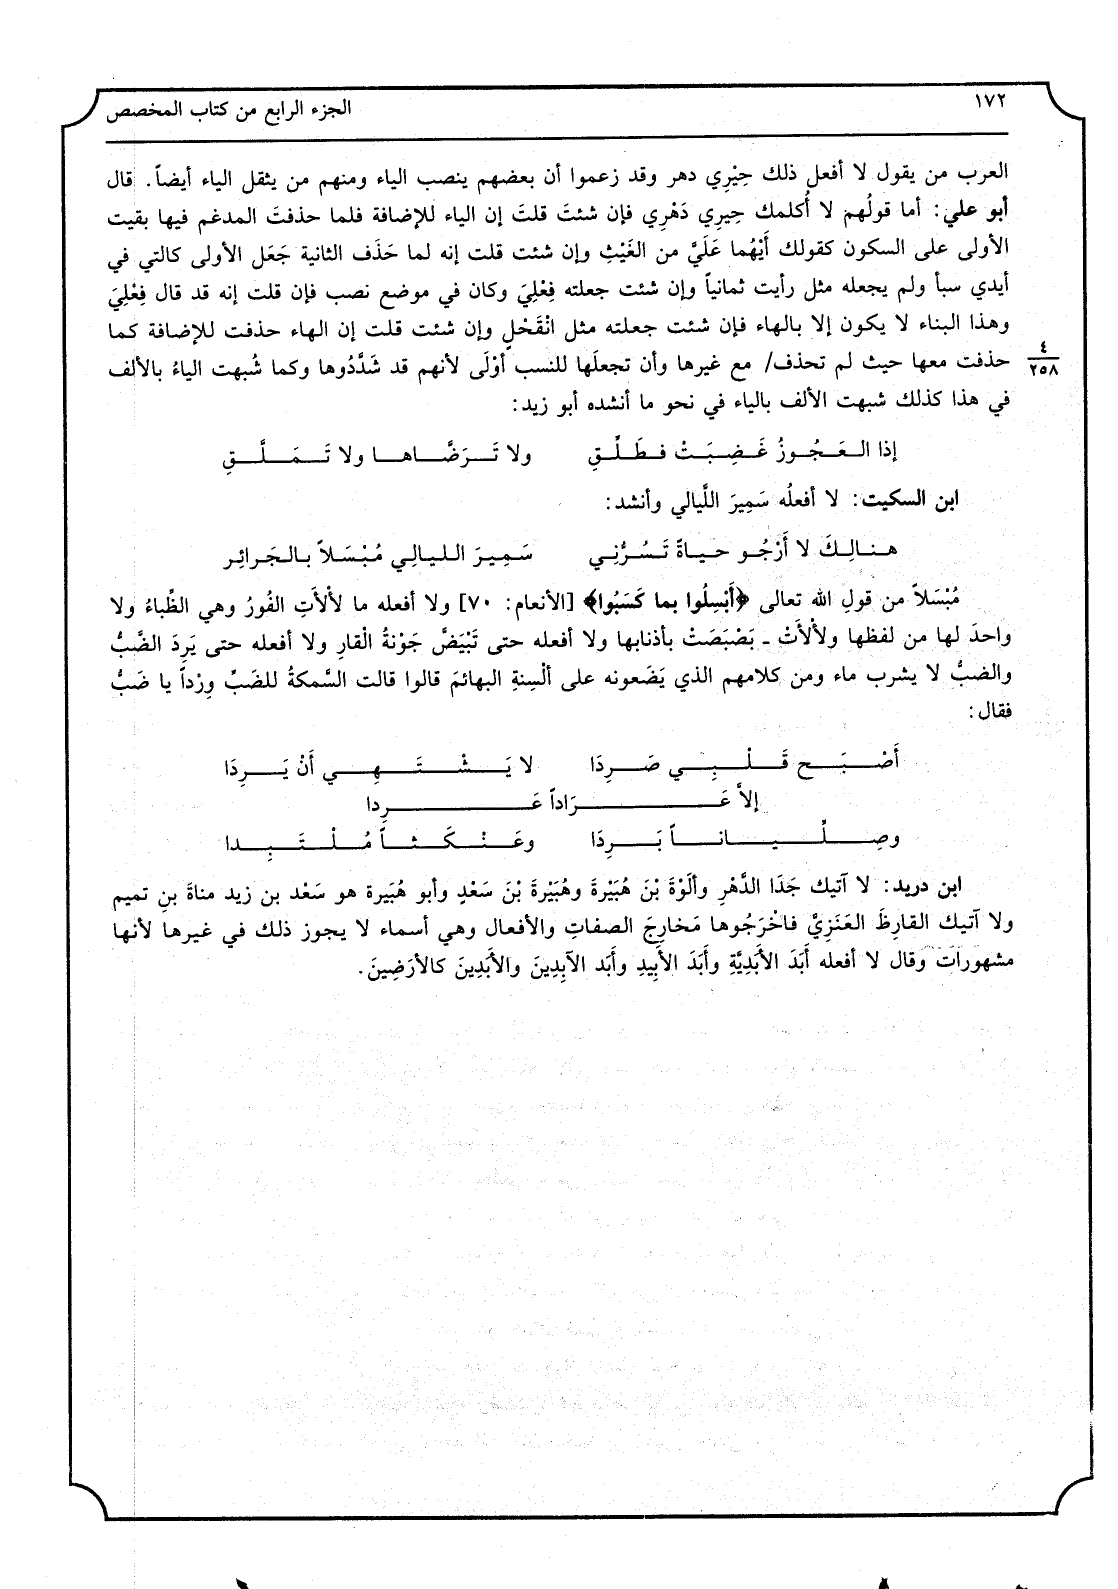 ١٧٢
الجزء الرابع من كتاب المخصص
العرب من يقول لا أفعل ذلك حِيْرِي دهر وقد زعموا أن بعضهم ينصب الياء ومنهم من يثقل الياء أيضاً. قال
أبو علي: أما قولُهم لا أُكلمك حِيرِي دَهْرِي فإن شئتَ قلتَ إن الياء للإضافة فلما حذفتَ المدغم فيها بقيت
الأولى على السكون كقولك أَيْهُما عَلَيَّ من الغَيْثِ وإن شئت قلت إنه لما حَذَف الثانية جَعَل الأولى كالتي في
أيدي سبأ ولم يجعله مثل رأيت ثمانياً وإن شئت جعلته فِعْلِيَ وكان في موضع نصب فإن قلت إنه قد قال فِعْلِيَ
وهذا البناء لا يكون إلا بالهاء فإن شئت جعلته مثل انْقَحْلٍ وإن شئت قلت إن الهاء حذفت للإضافة كما
حذفت معها حيث لم تحذف/ مع غيرها وأن تجعلَها للنسب أوْلَى لأنهم قد شَدَّدُوها وكما شُبهت الياءُ بالألف
٤
٢٥٨
في هذا كذلك شبهت الألف بالياء في نحو ما أنشده أبو زيد:
إذا العَجُوزُ غَضِبَتْ فطَلِّقِ ولا تَرَضَّاها ولا تَمَلَّقِ
ابن السكيت: لا أفعلُه سَمِيرَ اللَّيالي وأنشد:
هنالِكَ لا أَرْجُو حياةً تَسُرُّنِي سَمِيرَ الليالِي مُبْسَلاً بالجَرائِر
مُبْسَلاً من قولِ الله تعالى ﴿أُبْسِلُوا بما كَسَبُوا﴾ [الأنعام: ٧٠] ولا أفعله ما لأْلأَتِ الفُورُ وهي الظِّباءُ ولا
واحدَ لها من لفظها ولأْلأَتْ ـ بَصْبَصَتْ بأذنابها ولا أفعله حتى تَبْيَضَّ جَوْنةُ القارِ ولا أفعله حتى يَرِدَ الضَّبُّ
والضبُّ لا يشرب ماء ومن كلامهم الذي يَضَعونه على ألْسِنةِ البهائمَ قالوا قالت السَّمكةُ للضَبِّ وِرْداً يا ضَبُّ
فقال:
أَصْبَح قَلْبِي صَرِدَا لا يَشْتَهِي أَنْ يَرِدَا
إلاَّ عَرَاداً عَرِدا
وصِلِّياناً بَرِدَا وعَنْكَثاً مُلْتَبِدا
ابن دريد: لا آتيك جَدَا الدَّهْرِ وألْوَةَ بْنَ هُبَيْرةَ وهُبَيْرةَ بْنَ سَعْدٍ وأبو هُبَيرة هو سَعْد بن زيد مناةَ بنِ تميم
ولا آتيك القارِظَ العَنَزِيَّ فاخْرَجُوها مَخارِجَ الصفاتِ والأفعال وهي أسماء لا يجوز ذلك في غيرها لأنها
مشهورات وقال لا أفعله أَبَدَ الأَبَدِيَّةِ وأَبَدَ الأَبِيدِ وأَبَد الآبِدِينَ والأَبَدِينَ كالأرَضِينَ.